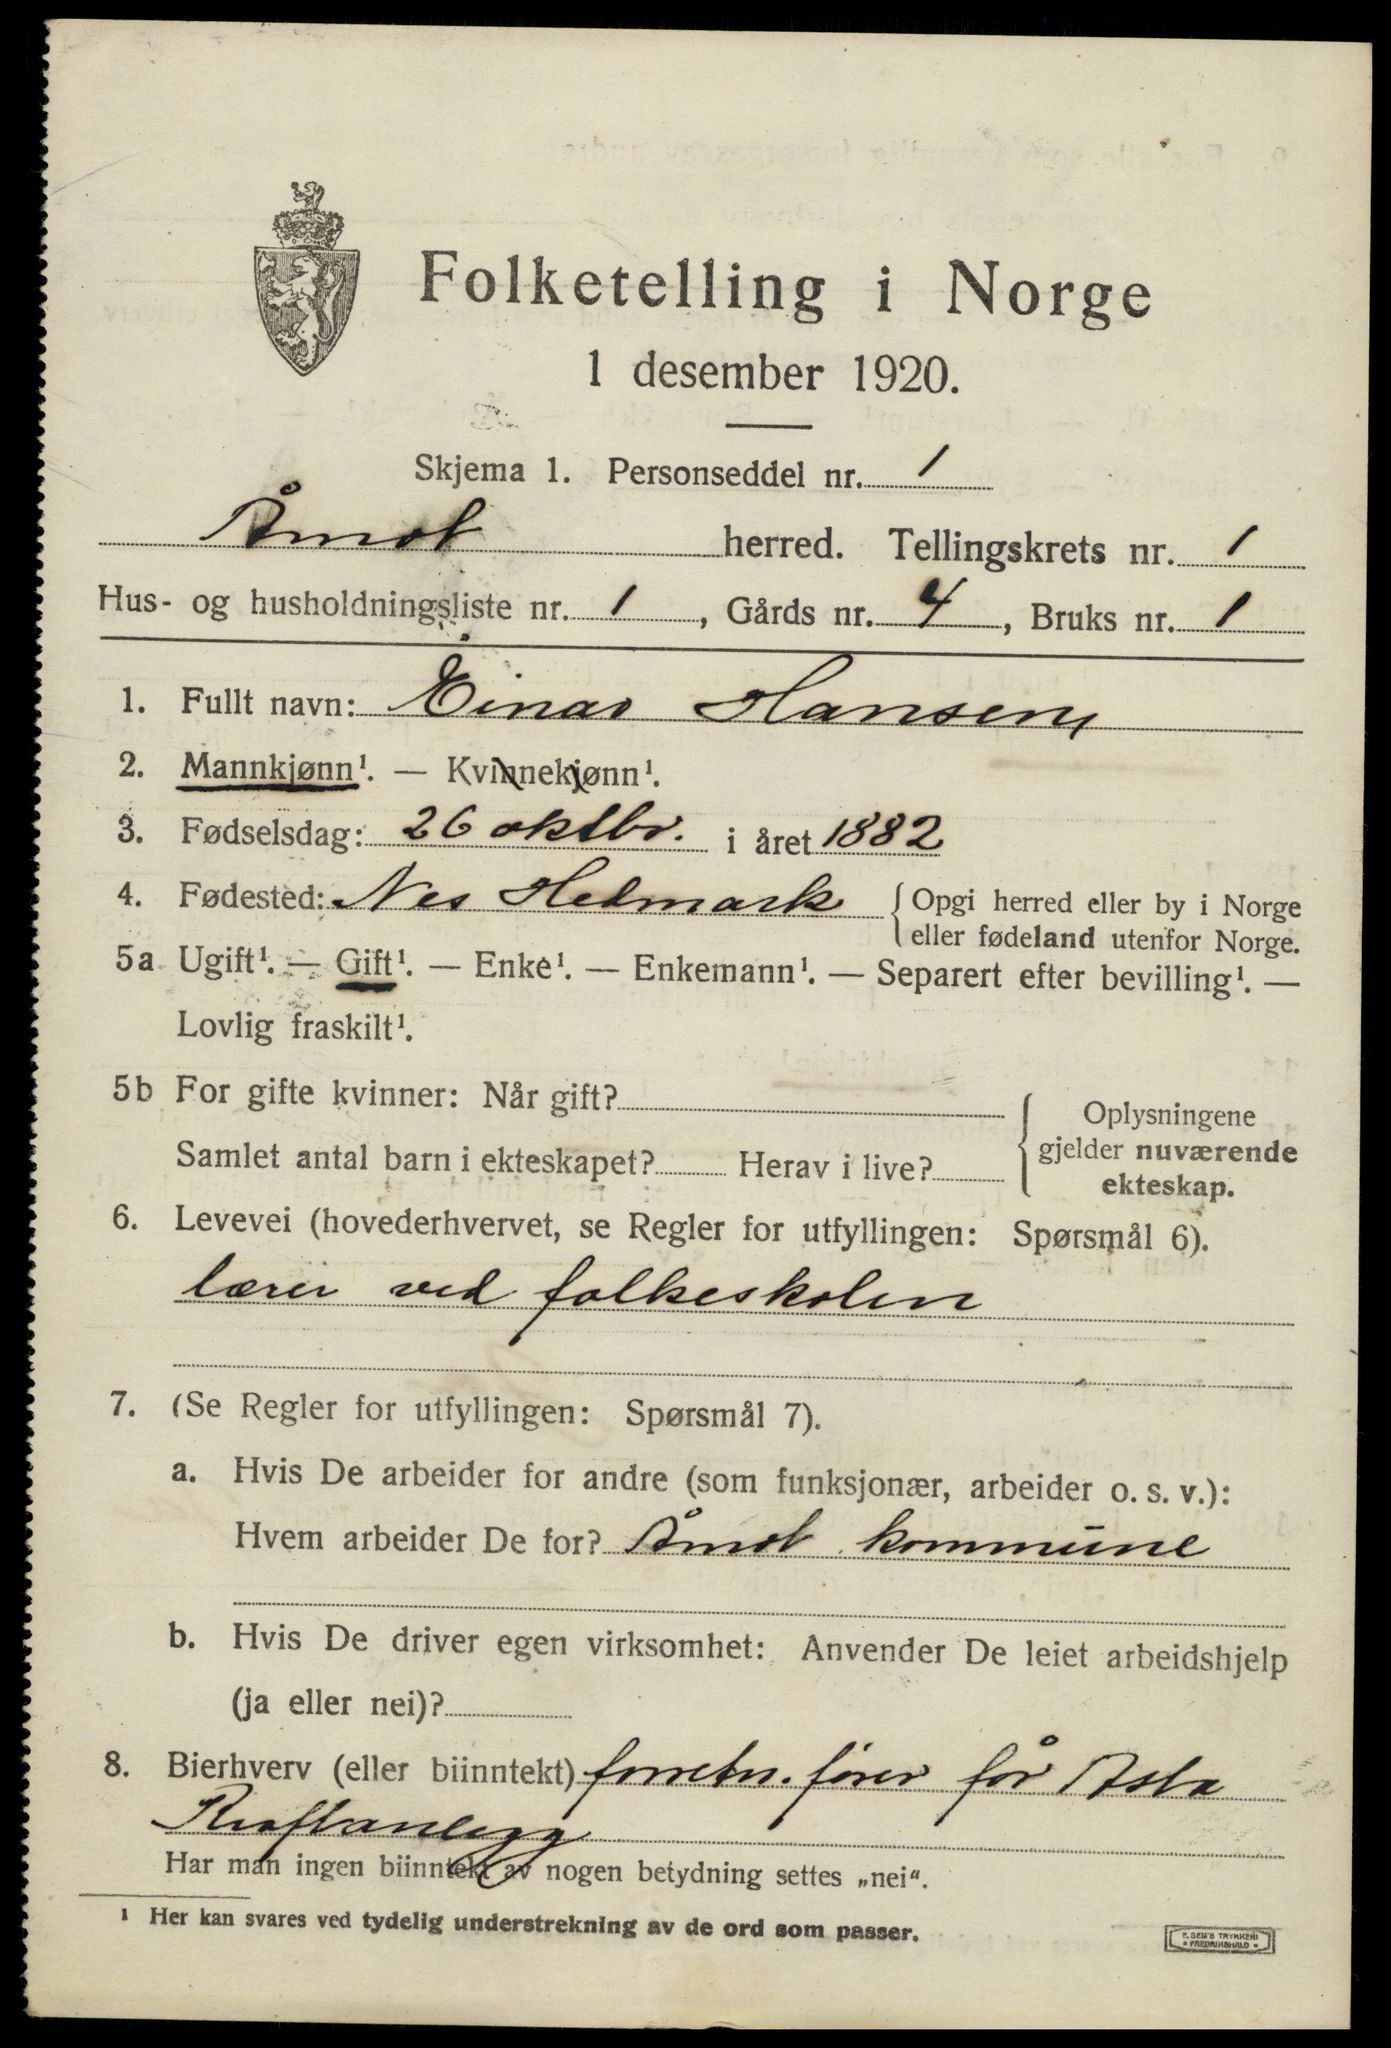 Folketelling i Norge
1 desember 1920.
Skjema 1. Personseddel nr. 1
Åmot herred. Tellingskrets nr. 1
Hus- og husholdningsliste nr. 1, Gårds nr. 4, Bruks nr. 1
1. Fullt navn: Einar Hansen
2. Mannkjønn¹. — Kvinnekjønn¹.
3. Fødselsdag: 26 oktbr. i året 1882
4. Fødested: Nes Hedmark { Opgi herred eller by i Norge
eller fødeland utenfor Norge.
5a Ugift¹. — Gift¹. — Enke¹. — Enkemann¹. — Separert efter bevilling¹. —
Lovlig fraskilt¹.
5b For gifte kvinner: Når gift? { Oplysningene
gjelder nuværende
Samlet antal barn i ekteskapet? Herav i live?
ekteskap.
6. Levevei (hovederhvervet, se Regler for utfyllingen: Spørsmål 6).
lærer ved folkeskolen
7. (Se Regler for utfyllingen: Spørsmål 7).
a. Hvis De arbeider for andre (som funksjonær, arbeider o. s. v.):
Hvem arbeider De for? Åmot kommune
b. Hvis De driver egen virksomhet: Anvender De leiet arbeidshjelp
(ja eller nei)?
8. Bierhverv (eller biinntekt) forretn. fører for Åsta
Kraftanlegg
Har man ingen biinntekt av nogen betydning settes „nei“.
¹ Her kan svares ved tydelig understrekning av de ord som passer.
E. SEM'S TRYKKERI
• FREDRIKSHALD •